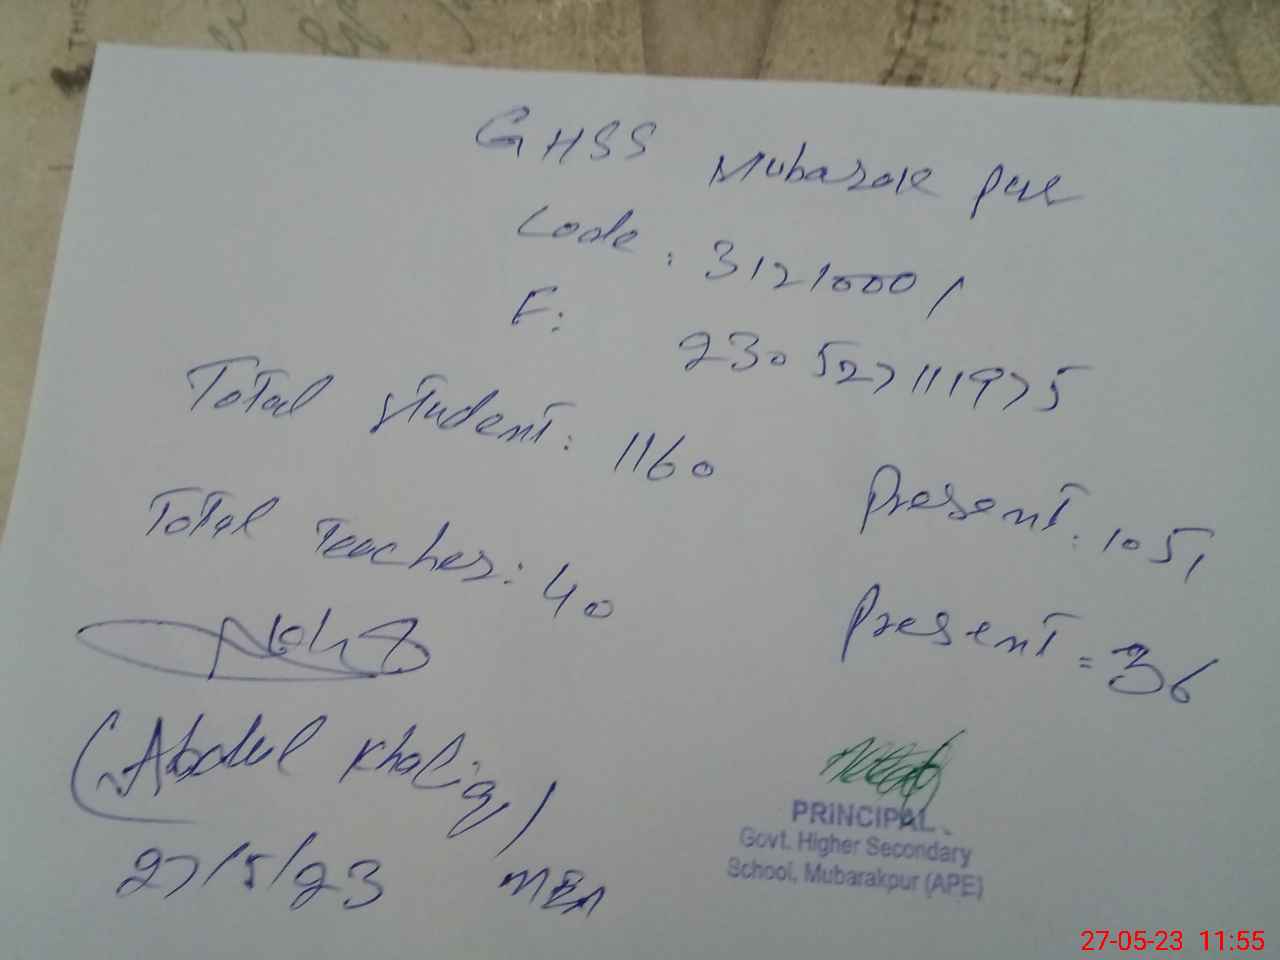 GHSS Mubarak pur
Code : 31210001
F: 230527111975
Total student : 1160 Present : 1051
Total Teacher : 40 Present = 36
(Abdul Khaliq)
27/5/23 MEA
PRINCIPAL
Govt. Higher Secondary
School, Mubarakpur (APE)
27-05-23 11:55